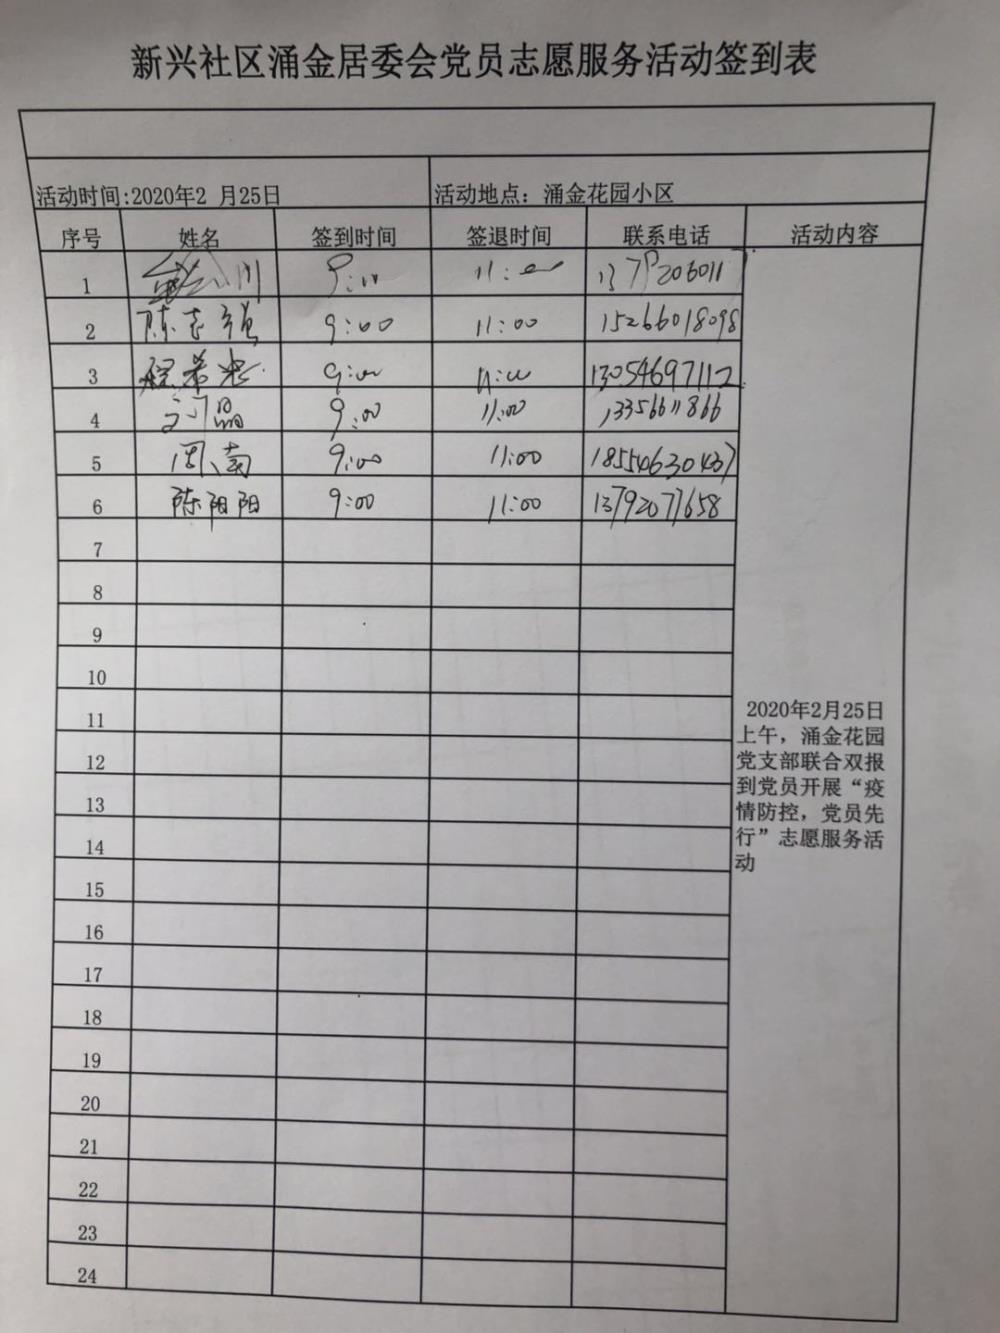 新兴社区涌金居委会党员志愿服务活动签到表
活动时间:2020年2 月25日 活动地点：涌金花园小区
序号 姓名 签到时间 签退时间 联系电话 活动内容
1 9:00 11:00
2 9:00 11:00 15266018098
3 9:00 11:00 13054697112
4 9:00 11:00 13356611866
5 周南 9:00 11:00 18554630437
6 陈阳阳 9:00 11:00 13792077658
7
8
9
10
11
12
13
14
15
16
17
18
19
20
21
22
23
24
2020年2月25日
上午，涌金花园
党支部联合双报
到党员开展“疫
情防控，党员先
行”志愿服务活
动